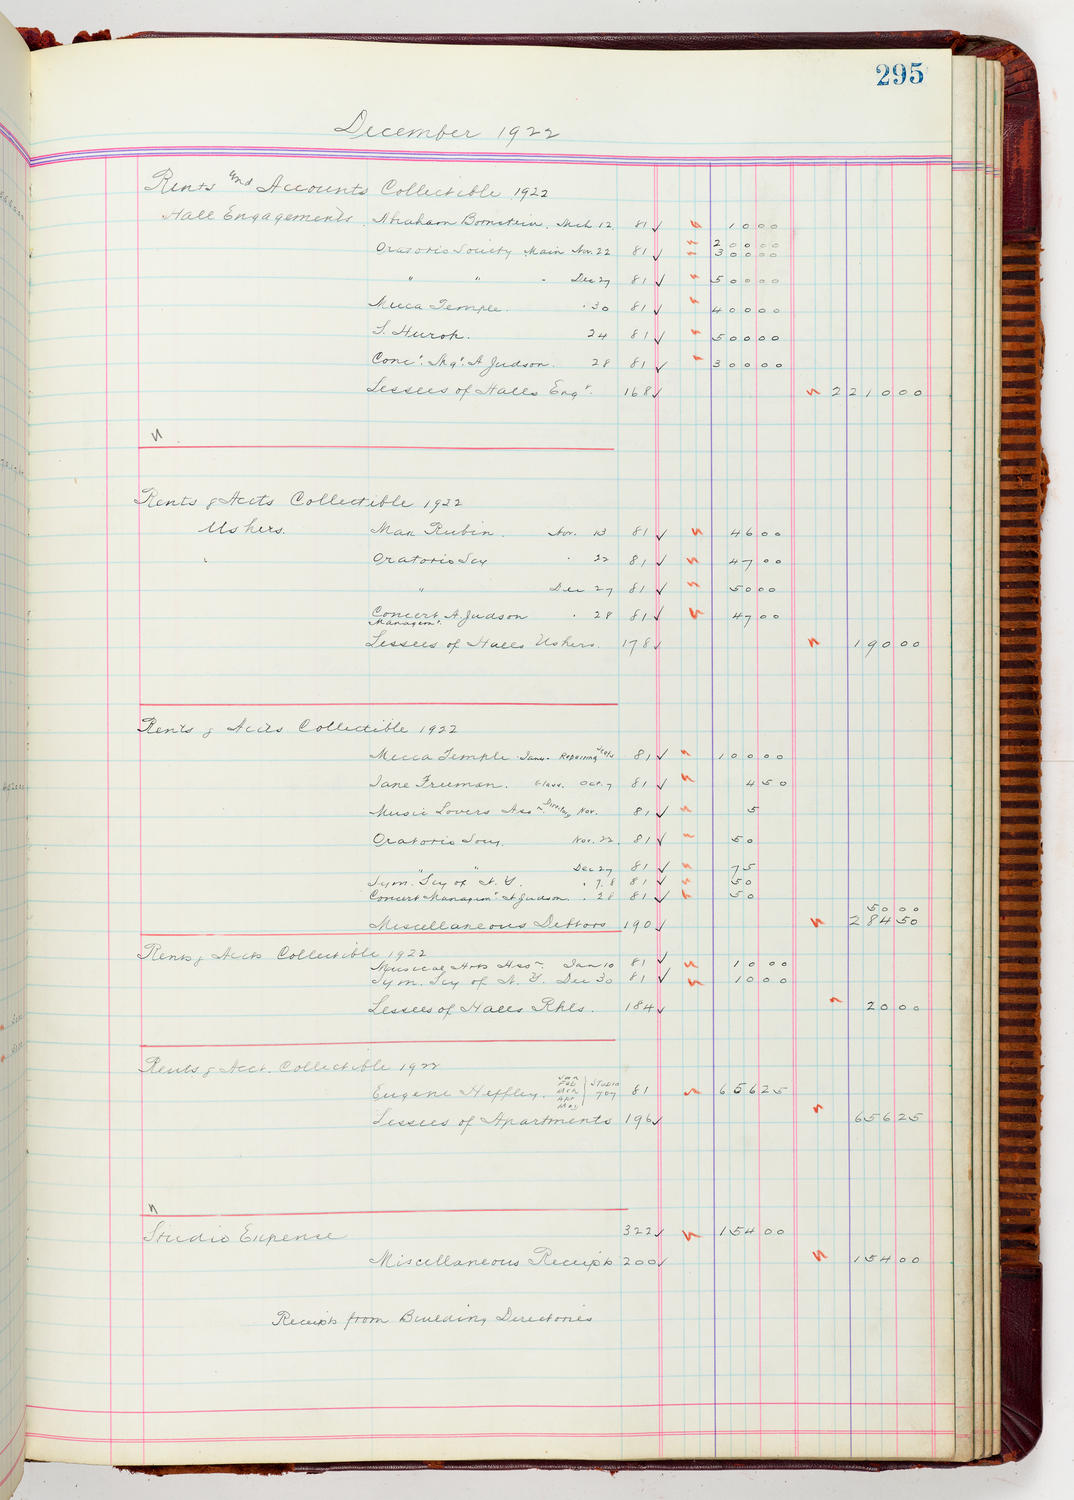 295
December 1922
Rents and Accounts Collectible 1922
Hall Engagements Abraham Bornstein. Mch 12. 81 ✓ 10 00
Oratorio Society Main Nov. 22 81 ✓ 200 00
300 00
" " " Dec 27 81 ✓ 500 00
Mecca Temple. " 30 81 ✓ 400 00
S. Hurok. 24 81 ✓ 500 00
Conc't. Mg't. A Judson. 28 81 ✓ 300 00
Lessees of Halls Eng'r. 168 ✓ 2210 00
Rents & Accts Collectible 1922
Ushers. Max Rubin. Nov. 13 81 ✓ 46 00
" Oratorio Scy " 22 81 ✓ 47 00
" Dec 27 81 ✓ 50 00
Concert A. Judson " 28 81 ✓ 47 00
Managem't.
Lessees of Halls Ushers. 178 ✓ 190 00
Rents & Accts Collectible 1922
Mecca Temple Jany. Repairing 81 ✓ 100 00
Jane Freeman. Glass. Oct. 7 81 ✓ 4 50
Music Lovers Ass'n. Nov. 81 ✓ 5
Oratorio Socy. Nov. 22. 81 ✓ 50
" Dec 27 81 ✓ 75
Sym. Scy of N.Y. " 81 ✓ 50
Concert Managem't A Judson. " 28 81 ✓ 50
50 00
Miscellaneous Debtors 190 ✓ 284 50
Rents & Accts Collectible 1922
Musical Arts Ass'n. Jan 10 81 ✓ 10 00
Sym. Scy of N.Y. Dec 30 81 ✓ 10 00
Lessees of Halls Rhls. 184 ✓ 20 00
Rents & Acct. Collectible 1922
Jan
Feb
Eugene Heffley. Mch Studio 707 81 656 25
Apr
May
Lessees of Apartments 196 ✓ 656 25
Studio Expense 322 ✓ 154 00
Miscellaneous Receipts 200 ✓ 154 00
Receipts from Building Directories